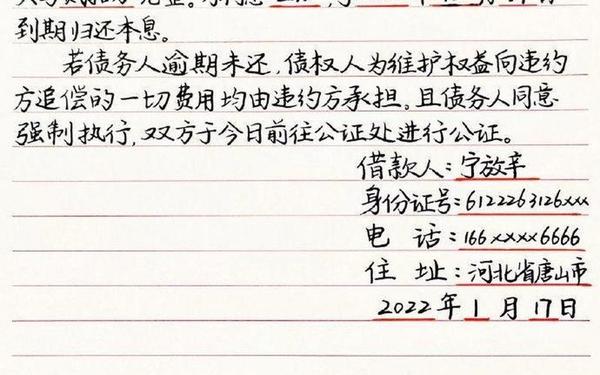 到期归还本息。
若债务人逾期未还,债权人为维护权益向违约
方追偿的一切费用均由违约方承担。且债务人同意
强制执行,双方于今日前往公证处进行公证。
借款人:宁放辛
身份证号:6122263126xxx
电 话:166xxxx6666
住 址:河北省唐山市
2022年1月17日